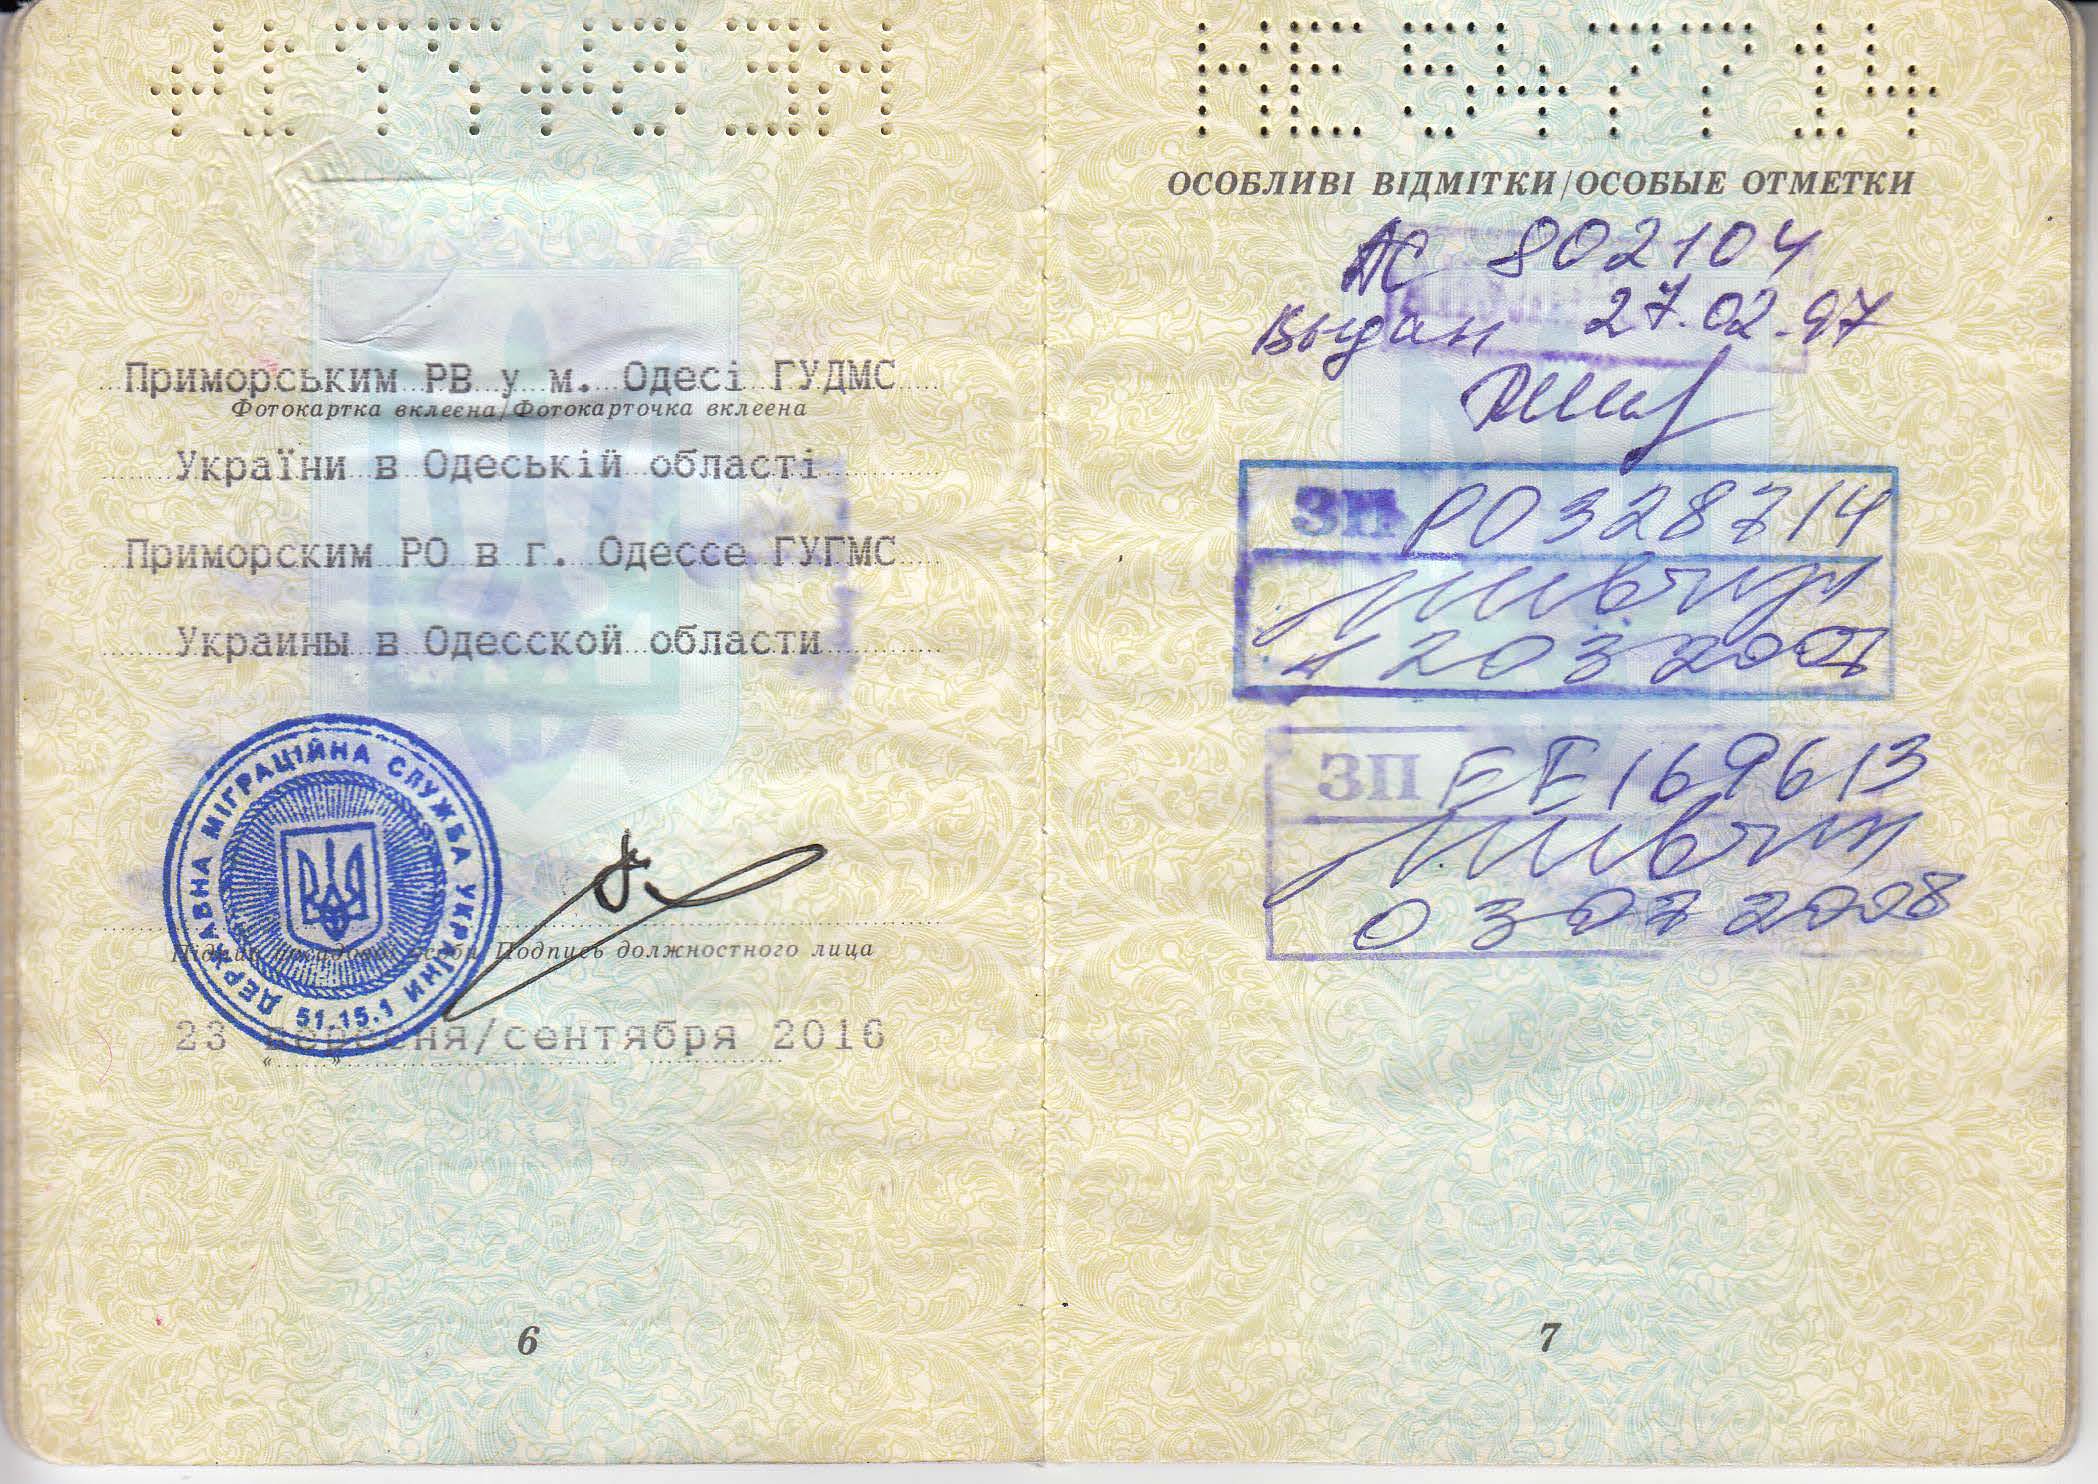 Приморським РВ у м. Одесі ГУДМС
Фотокартка вклеєна/Фотокарточка вклеена
України в Одеській області
Приморским РО в г. Одессе ГУГМС
Украины в Одесской области
ДЕРЖАВНА МІГРАЦІЙНА СЛУЖБА УКРАЇНИ
51.15.1
Підпис посадової особи/Подпись должностного лица
23 вересня/сентября 2016
6
КЕ 547714
ОСОБЛИВІ ВІДМІТКИ/ОСОБЫЕ ОТМЕТКИ
АС 802104
Выдан 27.02.97
ЗП РО328714
1203200
ЗП ЕЕ169613
03072008
7